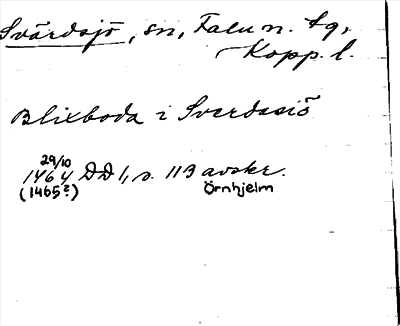 Svärdsjö, sn, Falu n. tg,
Kopp. l.
Blixboda i Sverdasiö
29/10
1464 DD 1, s. 113 avskr.
(1465?) Örnhjelm